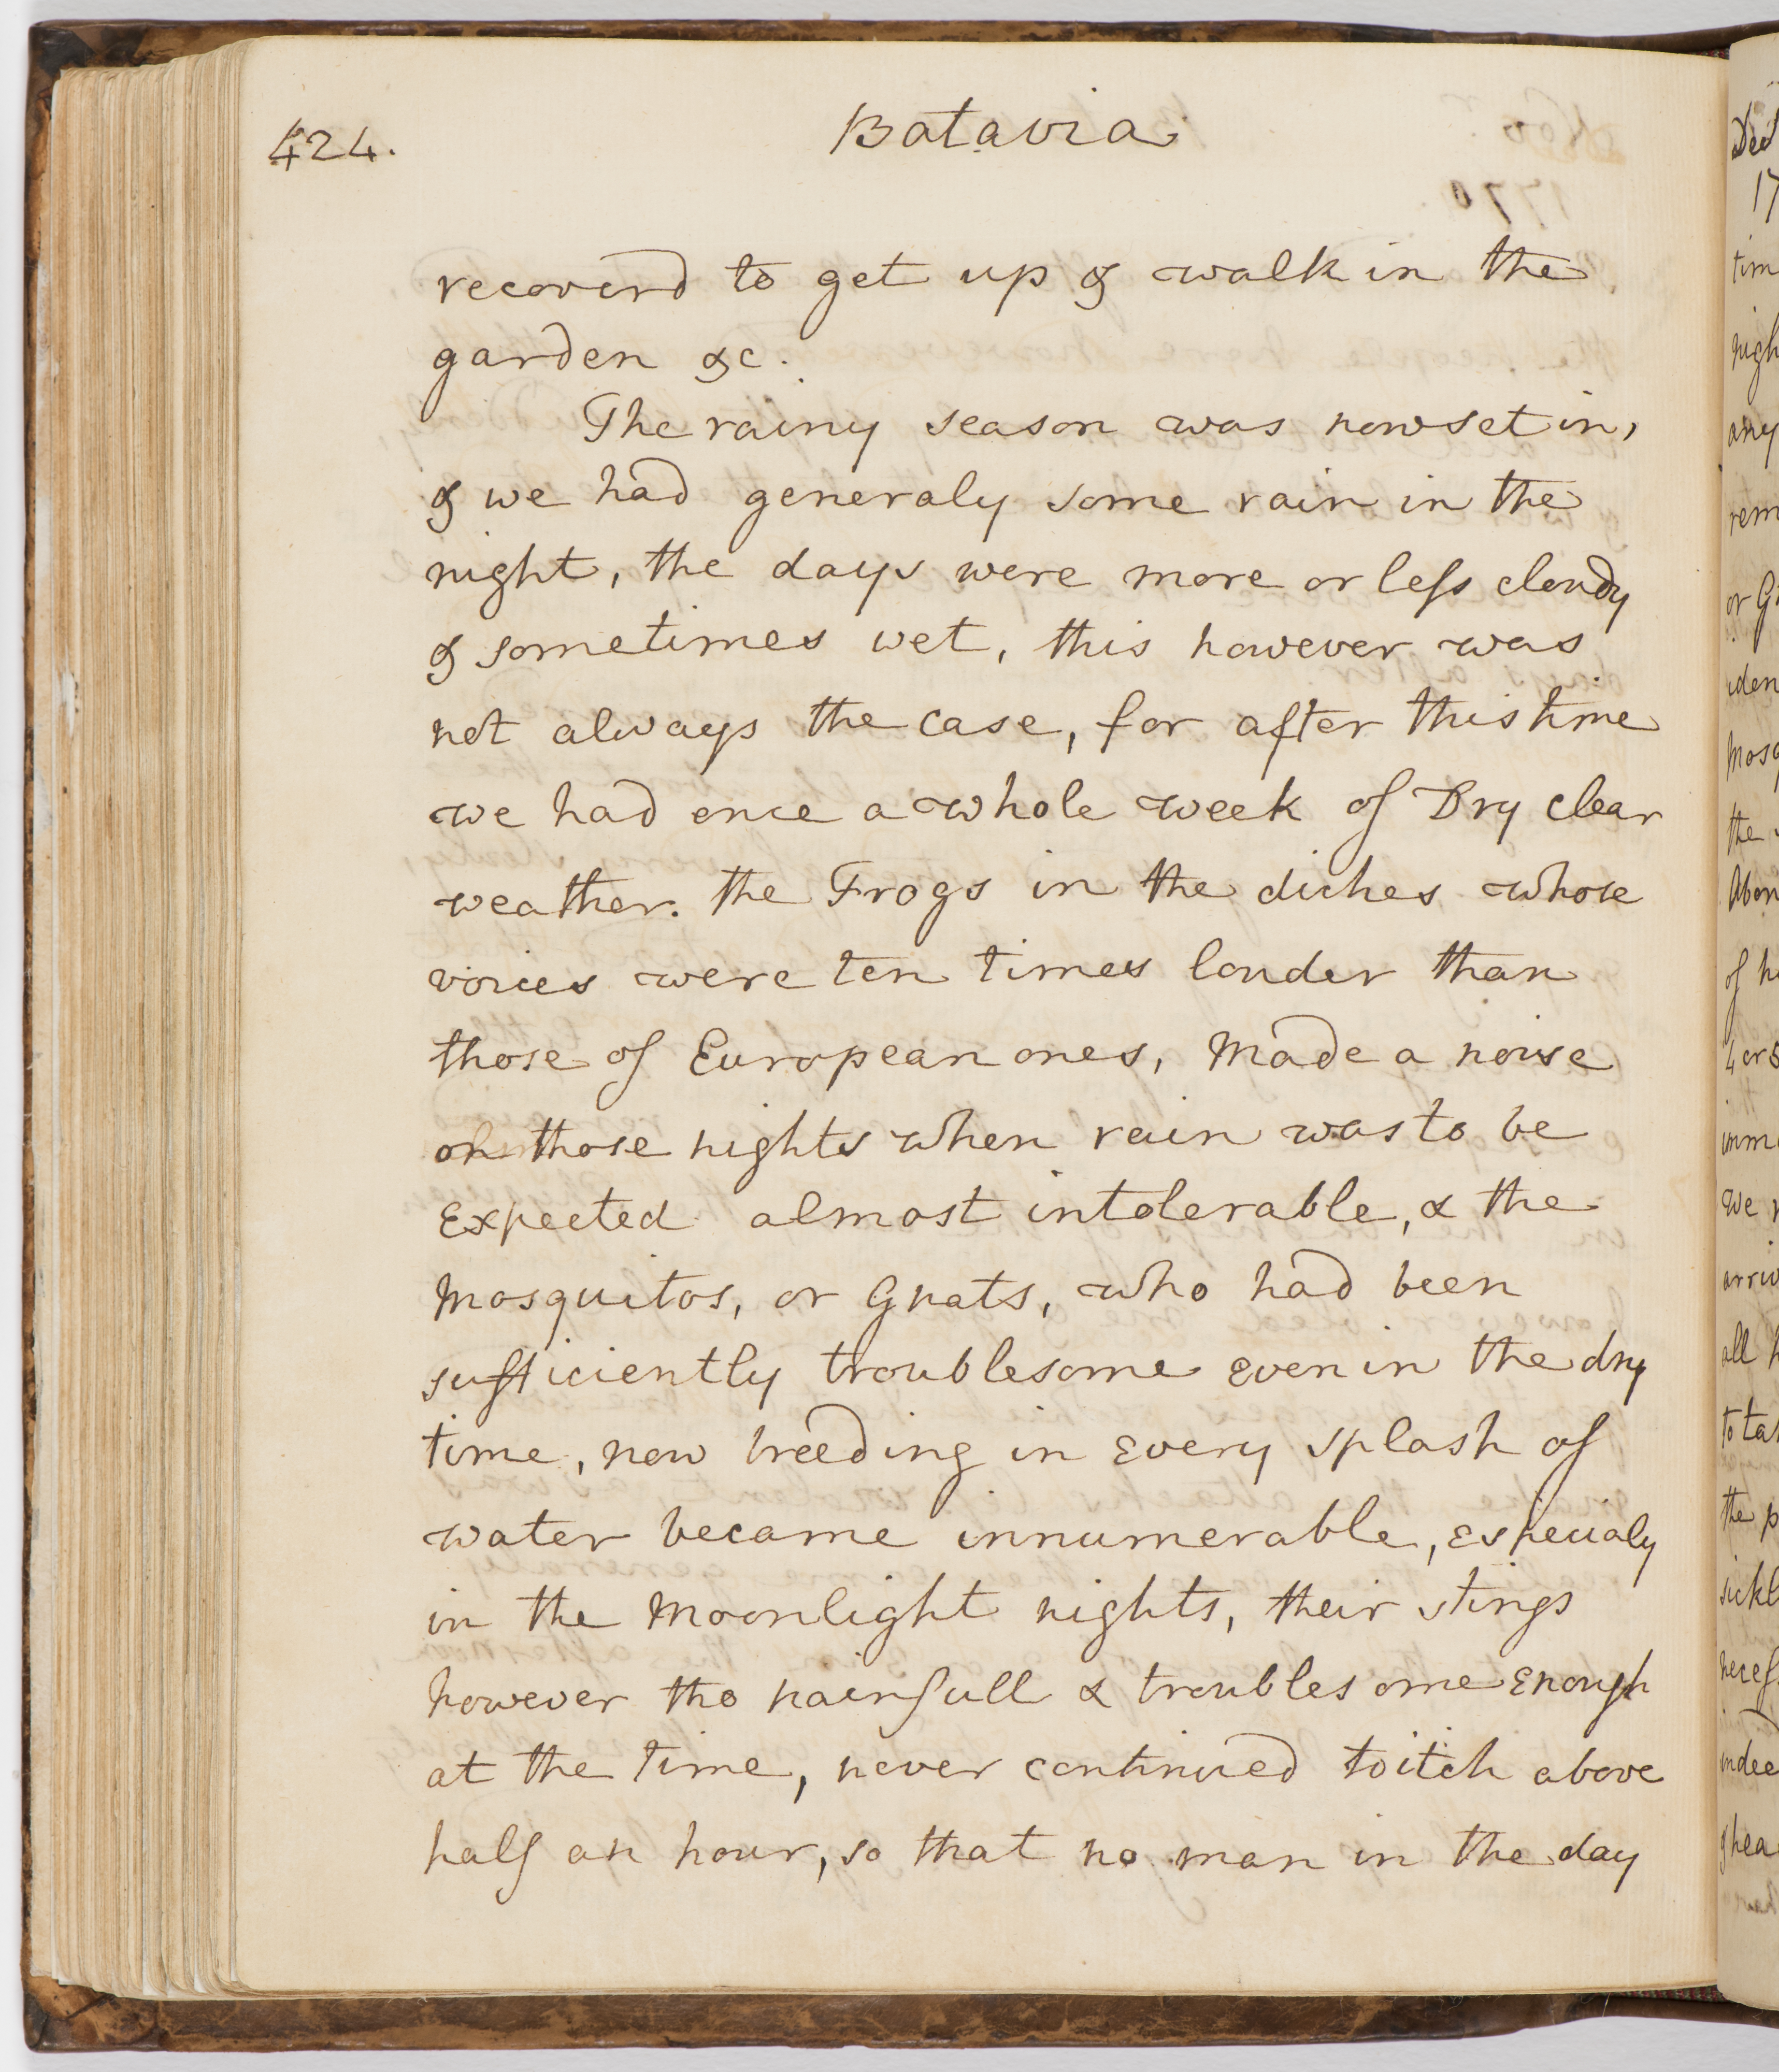 424.
Batavia
recoverd to get up & walk in the
garden &c.
The rainy season was now set in,
& we had generaly some rain in the
night, the days were more or less cloudy
& sometimes wet, this however was
not always the case, for after this time
we had once a whole week of Dry clear
weather. the Frogs in the diches whose
voices were ten times louder than
those of European ones, Made a noise
on those nights when rain was to be
Expected almost intolerable, & the
Mosquitos, or Gnats, who had been
sufficiently troublesome even in the dry
time, now breeding in Every splash of
water became innumerable, Especialy
in the Moonlight nights, their stings
however tho painfull & troublesome Enough
at the time, never continued to itch above
half an hour, so that no man in the day
Decr
17
tim
nigh
any
rem
or G
iden
Mosq
the
Abou
of h
4 or 5
imm
we
arriv
all h
to ta
the p
sickl
neces
indee